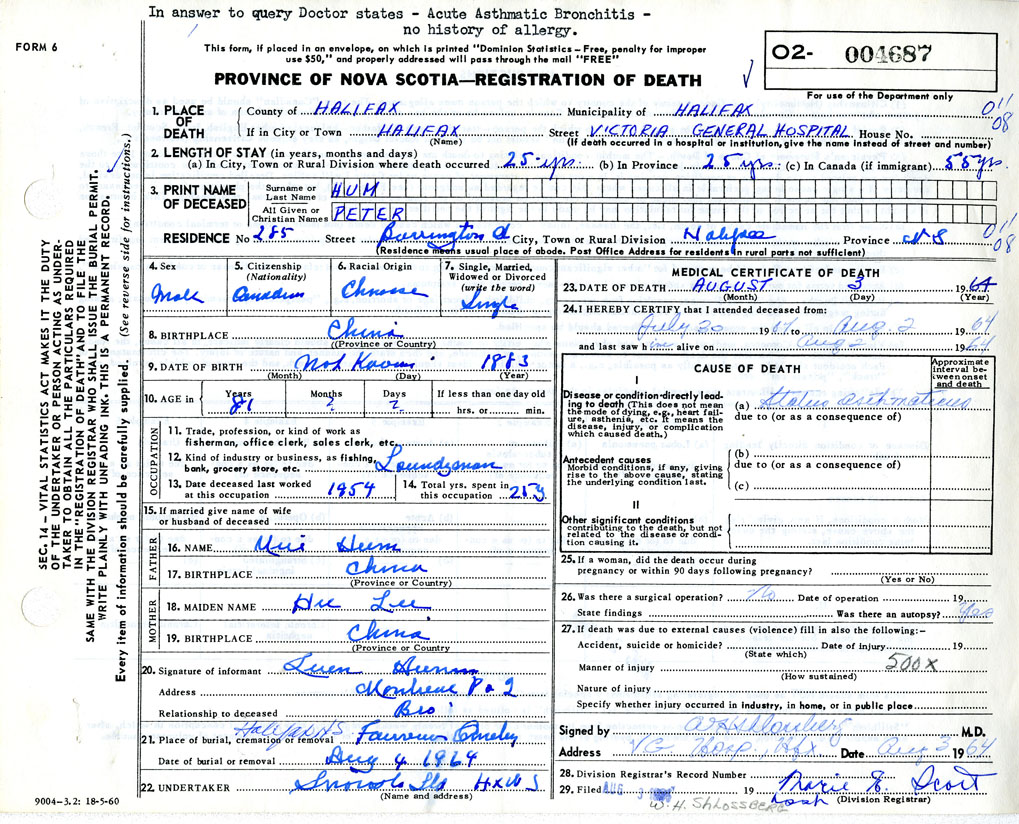 In answer to query Doctor states - Acute Asthmatic Bronchitis -
no history of allergy.
FORM 6
This form, if placed in an envelope, on which is printed "Dominion Statistics—Free, penalty for improper
use $50," and properly addressed will pass through the mail "FREE"
PROVINCE OF NOVA SCOTIA—REGISTRATION OF DEATH
02- 004687
For use of the Department only
1. PLACE OF DEATH
County of HALIFAX Municipality of HALIFAX 0 11
08
If in City or Town HALIFAX Street VICTORIA GENERAL HOSPITAL House No.
(Name) (If death occurred in a hospital or institution, give the name instead of street and number)
2. LENGTH OF STAY (in years, months and days)
(a) In City, Town or Rural Division where death occurred 25 yrs. (b) In Province 25 yrs. (c) In Canada (if immigrant) 55 yrs.
3. PRINT NAME OF DECEASED
Surname or Last Name HUM
All Given or Christian Names PETER
RESIDENCE No 285 Street Barrington St City, Town or Rural Division Halifax Province NS 0 11
08
(Residence means usual place of abode. Post Office Address for residents in rural parts not sufficient)
4. Sex
Male
5. Citizenship
(Nationality)
Canadian
6. Racial Origin
Chinese
7. Single, Married,
Widowed or Divorced
(write the word)
Single
8. BIRTHPLACE China
(Province or Country)
9. DATE OF BIRTH Not Known 1883
(Month) (Day) (Year)
10. AGE in Years Months Days If less than one day old
81 ? ? hrs. or min.
OCCUPATION
11. Trade, profession, or kind of work as
fisherman, office clerk, sales clerk, etc.
12. Kind of industry or business, as fishing,
bank, grocery store, etc. Laundryman
13. Date deceased last worked
at this occupation 1954
14. Total yrs. spent in
this occupation 25 y
15. If married give name of wife
or husband of deceased
FATHER
16. NAME Hum
17. BIRTHPLACE China
(Province or Country)
MOTHER
18. MAIDEN NAME Lee
19. BIRTHPLACE China
(Province or Country
20. Signature of informant
Address Montreal P Q
Relationship to deceased Bro
21. Place of burial, cremation or removal Halifax NS Fairview
Date of burial or removal Aug 4 1964
22. UNDERTAKER Snows Ltd Hx N S
(Name and address)
9004-3.2: 18-5-60
MEDICAL CERTIFICATE OF DEATH
23. DATE OF DEATH AUGUST 3 1964
(Month) (Day) (Year)
24. I HEREBY CERTIFY that I attended deceased from:
July 20 1964 to Aug 2 1964
and last saw him alive on Aug 2 1964
CAUSE OF DEATH
Approximate
interval be-
tween onset
and death
I
Disease or condition directly lead-
ing to death (This does not mean
the mode of dying, e.g., heart fail-
ure, asthenia, etc. It means the
disease, injury, or complication
which caused death.)
(a) Status asthmaticus
due to (or as a consequence of)
Antecedent causes
Morbid conditions, if any, giving
rise to the above cause, stating
the underlying condition last.
(b)
due to (or as a consequence of)
(c)
II
Other significant conditions
contributing to the death, but not
related to the disease or condi-
tion causing it.
25. If a woman, did the death occur during
pregnancy or within 90 days following pregnancy?
(Yes or No)
26. Was there a surgical operation? No Date of operation 19
State findings Was there an autopsy? Yes
27. If death was due to external causes (violence) fill in also the following:—
Accident, suicide or homicide? Date of injury 19
(State which)
Manner of injury 500X
(How sustained)
Nature of injury
Specify whether injury occurred in industry, in home, or in public place
Signed by M.D.
Address VG Hosp., Hfx Date Aug 3 1964
28. Division Registrar's Record Number
29. Filed AUG 3 19 Marie E. Scott
(Division Registrar)
W. H. SHLOSSBERG
SEC. 14 — VITAL STATISTICS ACT MAKES IT THE DUTY
OF THE UNDERTAKER OR PERSON ACTING AS UNDER-
TAKER TO OBTAIN ALL THE PARTICULARS REQUIRED
IN THE "REGISTRATION OF DEATH" AND TO FILE THE
SAME WITH THE DIVISION REGISTRAR WHO SHALL ISSUE THE BURIAL PERMIT.
WRITE PLAINLY WITH UNFADING INK. THIS IS A PERMANENT RECORD.
Every item of information should be carefully supplied. (See reverse side for instructions.)